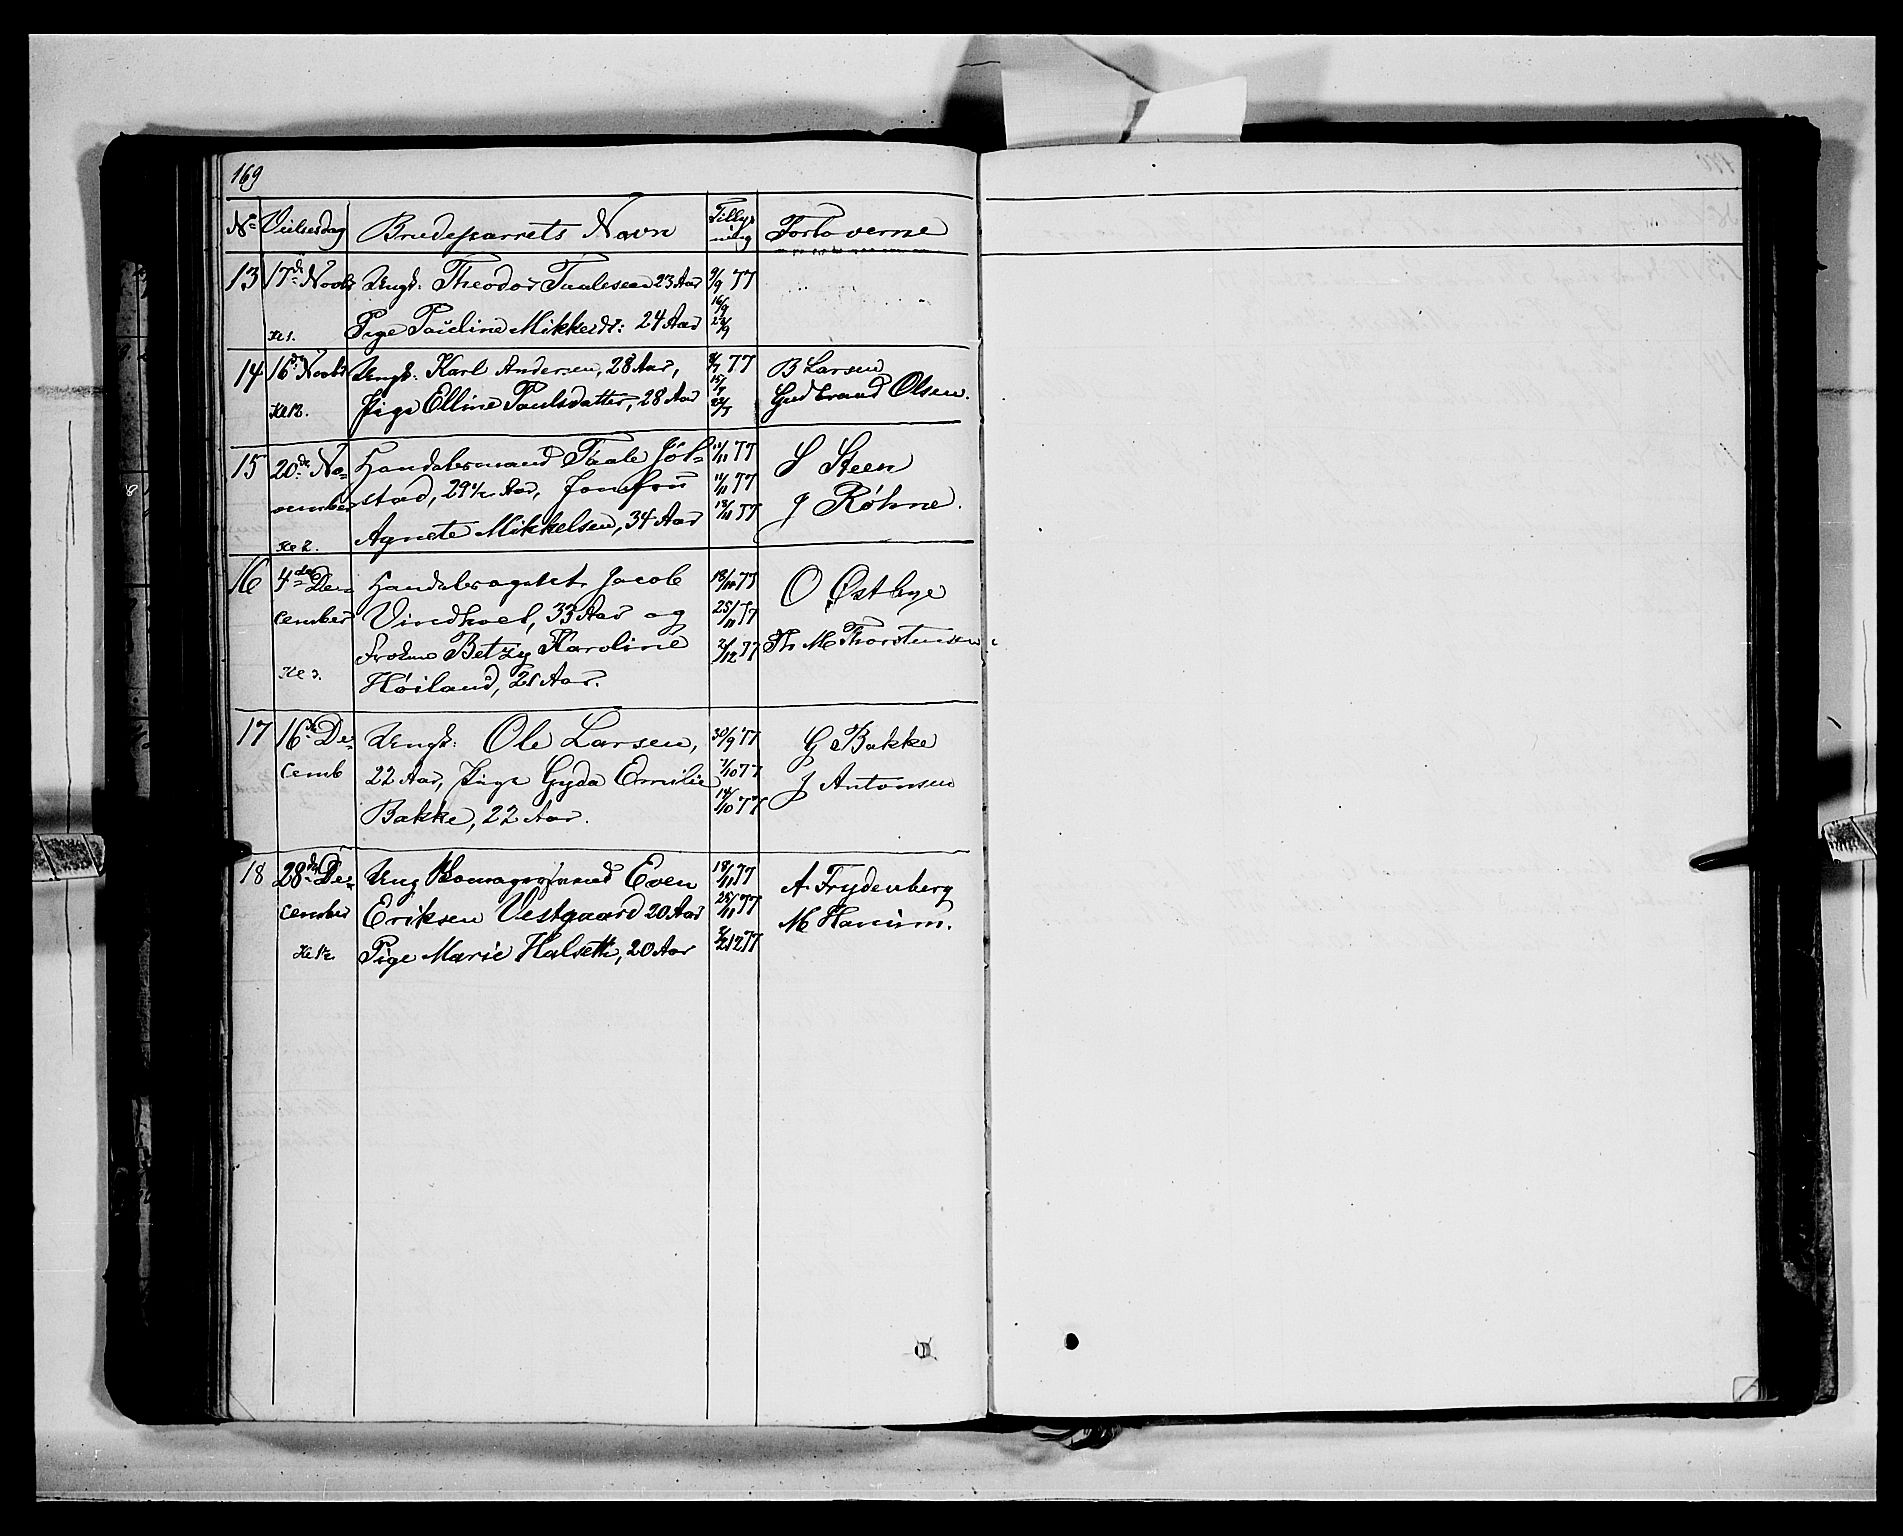 169
No Vielsesdag Brudeparrets Navn Tillysning Forloverne
13 17de Novbr Ungk: Theodor Taalesen 23 Aar 9/9 77
16/9
Kl 1. Pige Pauline Mikkelsdt: 24 Aar 23/9
14 16de Novbr Ungk: Karl Andersen, 28 Aar, 8/7 77 B Larsen
15/7
Kl 12. Pige Elline Paulsdatter, 28 Aar 22/7 Gudbrand Olsen.
15 20de No- Handelsmand Taale Jøl- 11/11 77 S Steen
vember stad, 29 1/2 Aar, Jomfru 11/11 77 J Røhne.
Kl 2. Agnete Mikkelsen, 34 Aar 18/11 77
16 4de De- Handelsagent Jacob 18/11 77 O Østbye
cember Vindhoel, 33 Aar og 25/11 77
Frøken Betzy Karoline 2/12 77 Th M Thorstensen
Kl 2. Høiland, 21 Aar.
17 16de De- Ungk: Ole Larsen, 30/9 77 G Bakke
cemb 22 Aar, Pige Gyda Emilie 7/10 77 J Antonsen
Bakke, 22 Aar. 14/10 77
18 28de De- Ung Even 18/11 77 A Frydenberg
cember Eriksen Vestgaard 20 Aar 25/11 77 M Hanum.
Kl 1/2 Pige Marie Halseth, 20 Aar 2/12 77